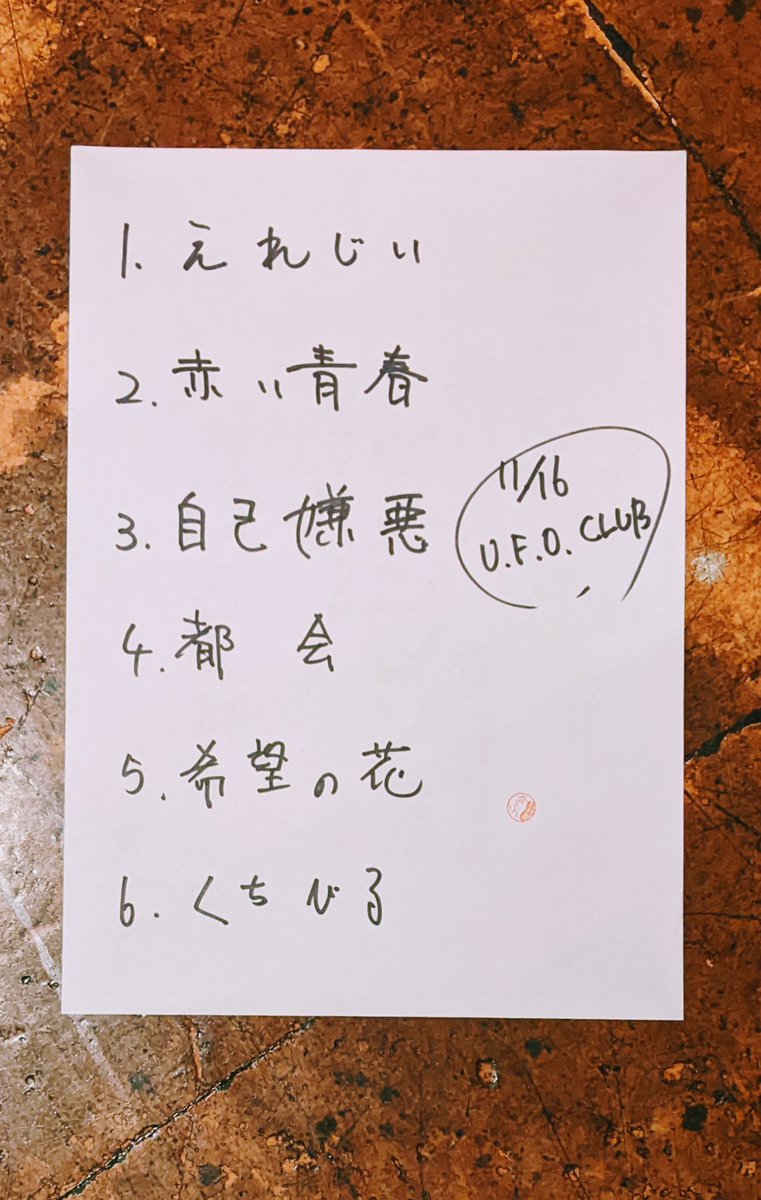 1. えれじい
2. 赤い青春
3. 自己嫌悪
11/16
U.F.O. CLUB
4. 都会
5. 希望の花
6. くちびる